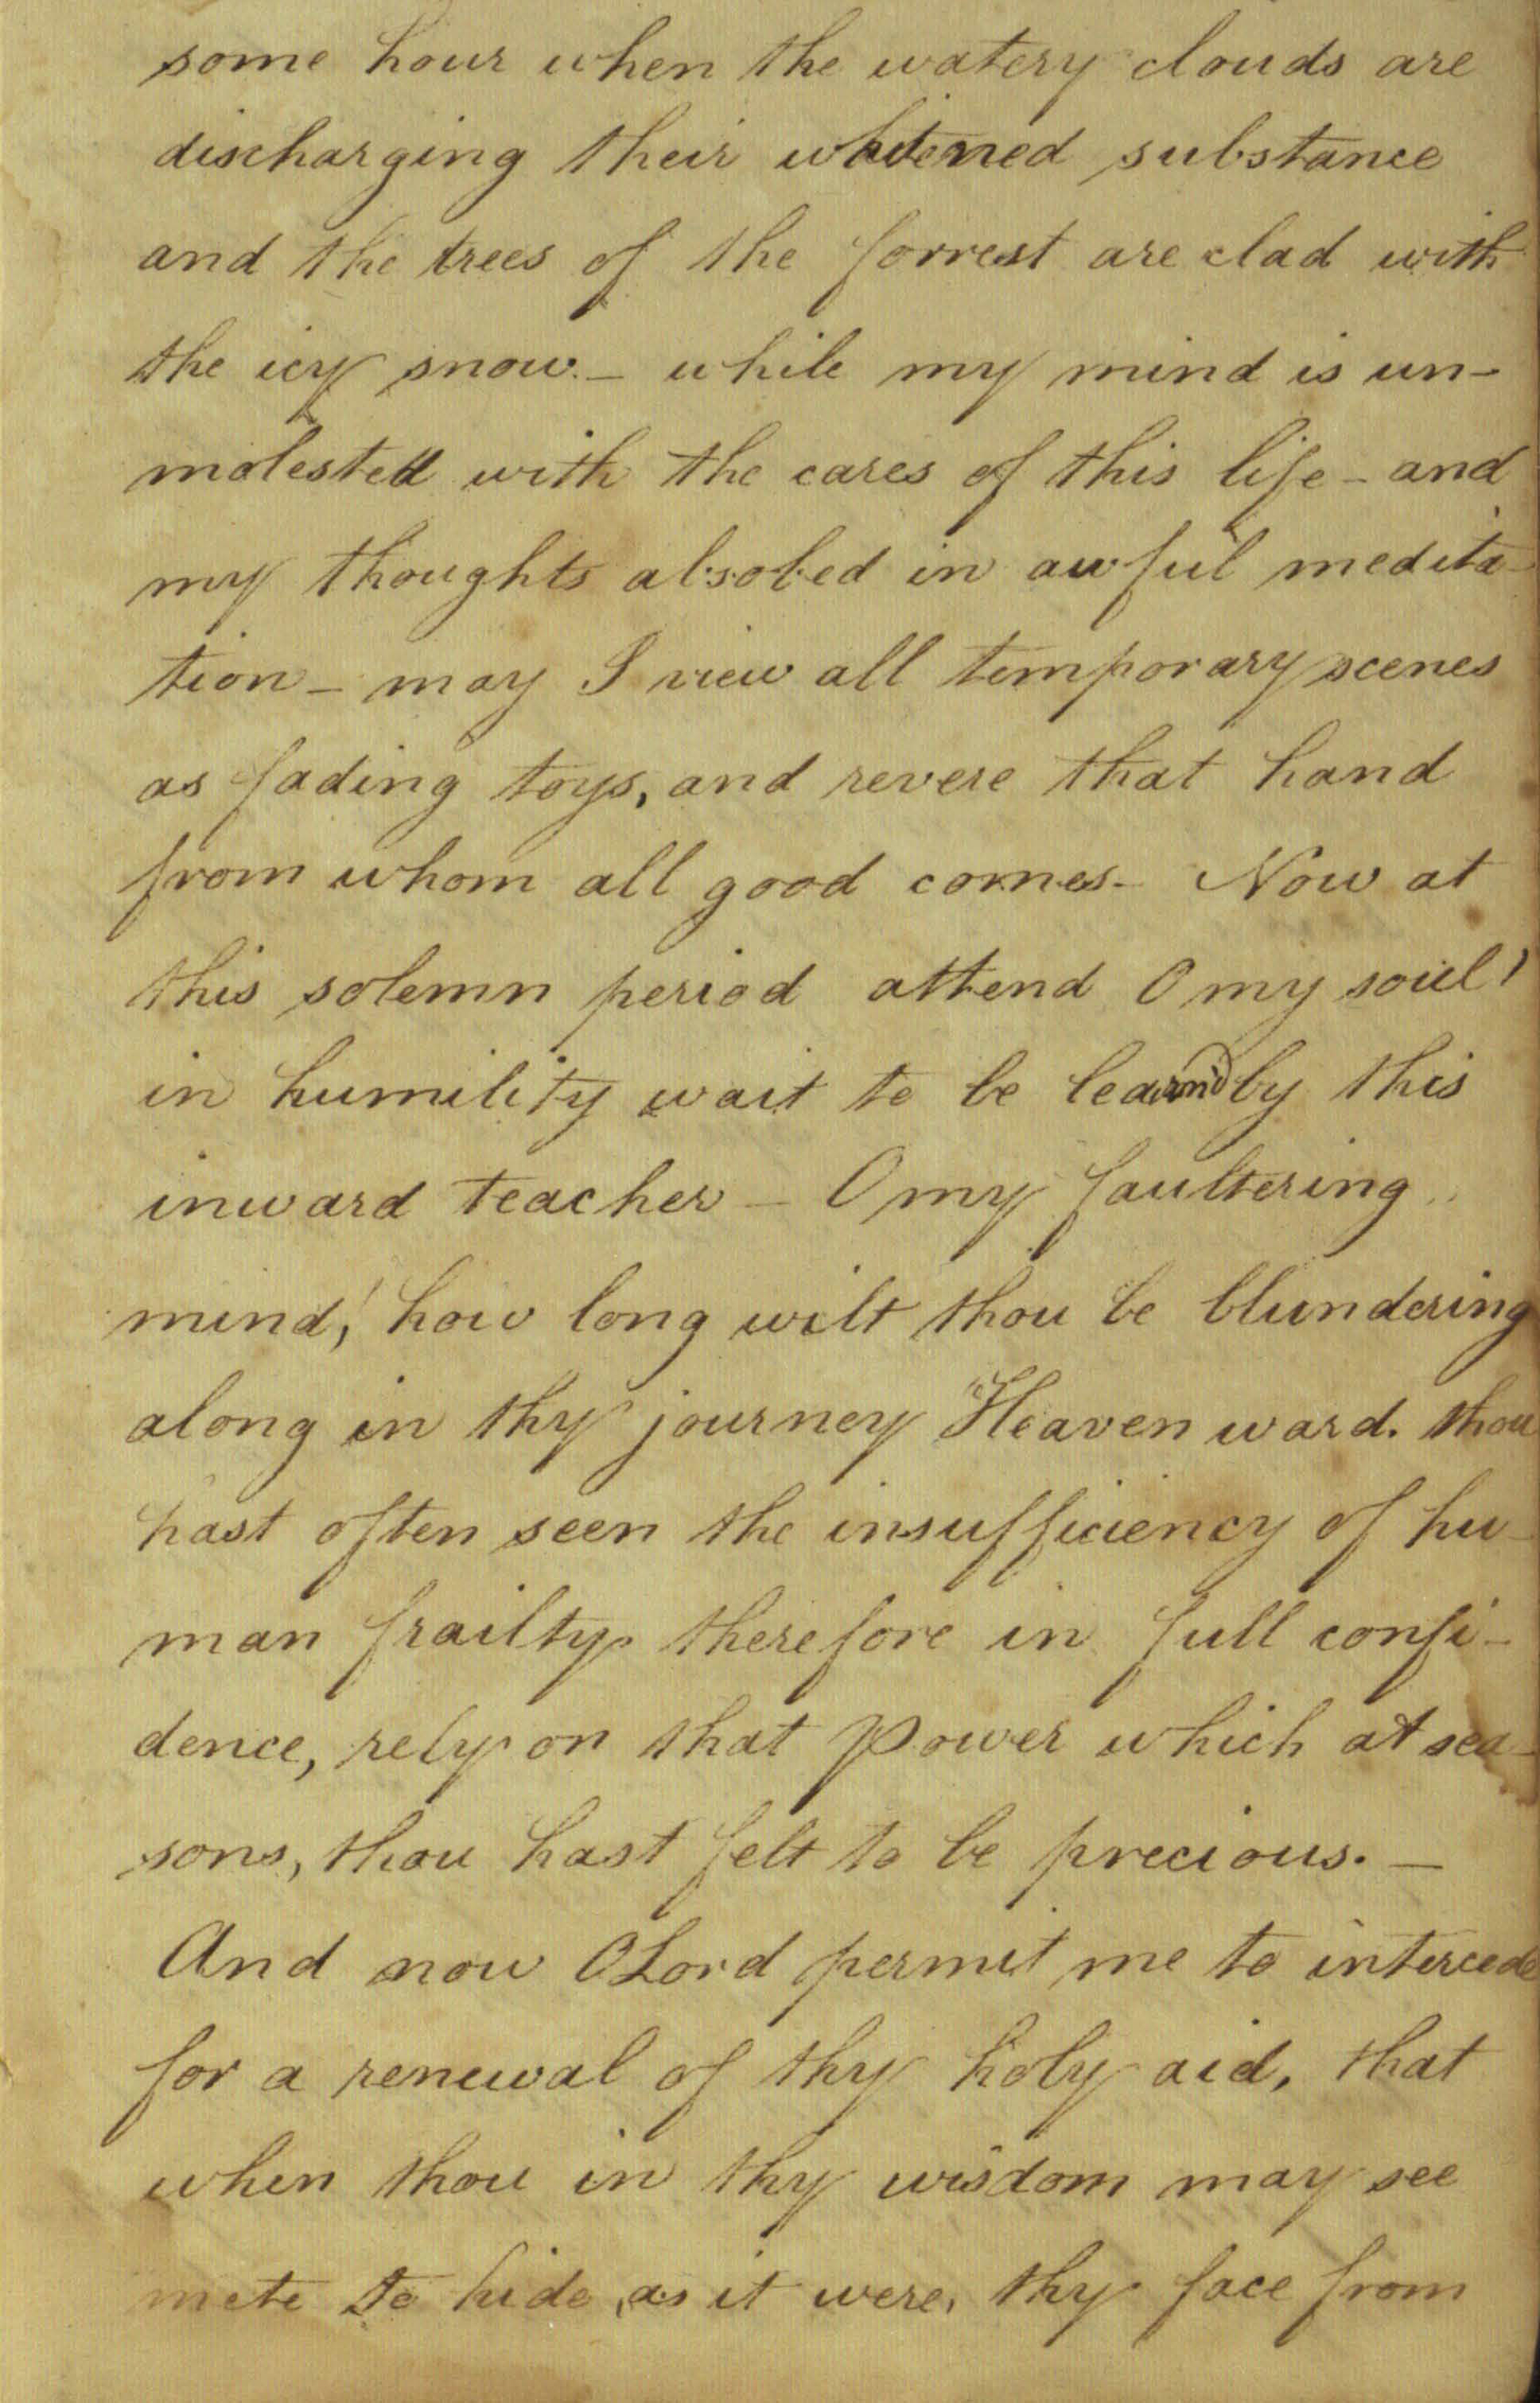 some hour when the watery clouds are
discharging their whitened substance
and the trees of the forrest are clad with
the icy snow. – while my mind is un-
molested with the cares of this life – and
my thoughts absobed in awful medita-
tion – may I view all temporary scenes
as fading toys, and revere that hand
from whom all good comes – Now at
this solemn period attend O my soul!
in humility wait to be learnd by this
inward teacher – O my faultering
mind,! how long wilt thou be blundering
along in thy journey Heaven ward. thou
hast often seen the insufficiency of hu-
man frailty. therefore in full confi-
dence, rely on that Power which at sea-
sons, thou hast felt to be precious. –
And now O Lord permit me to intercede
for a renewal of thy holy aid, that
when thou in thy wisdom may see
mete to hide, as it were, thy face from